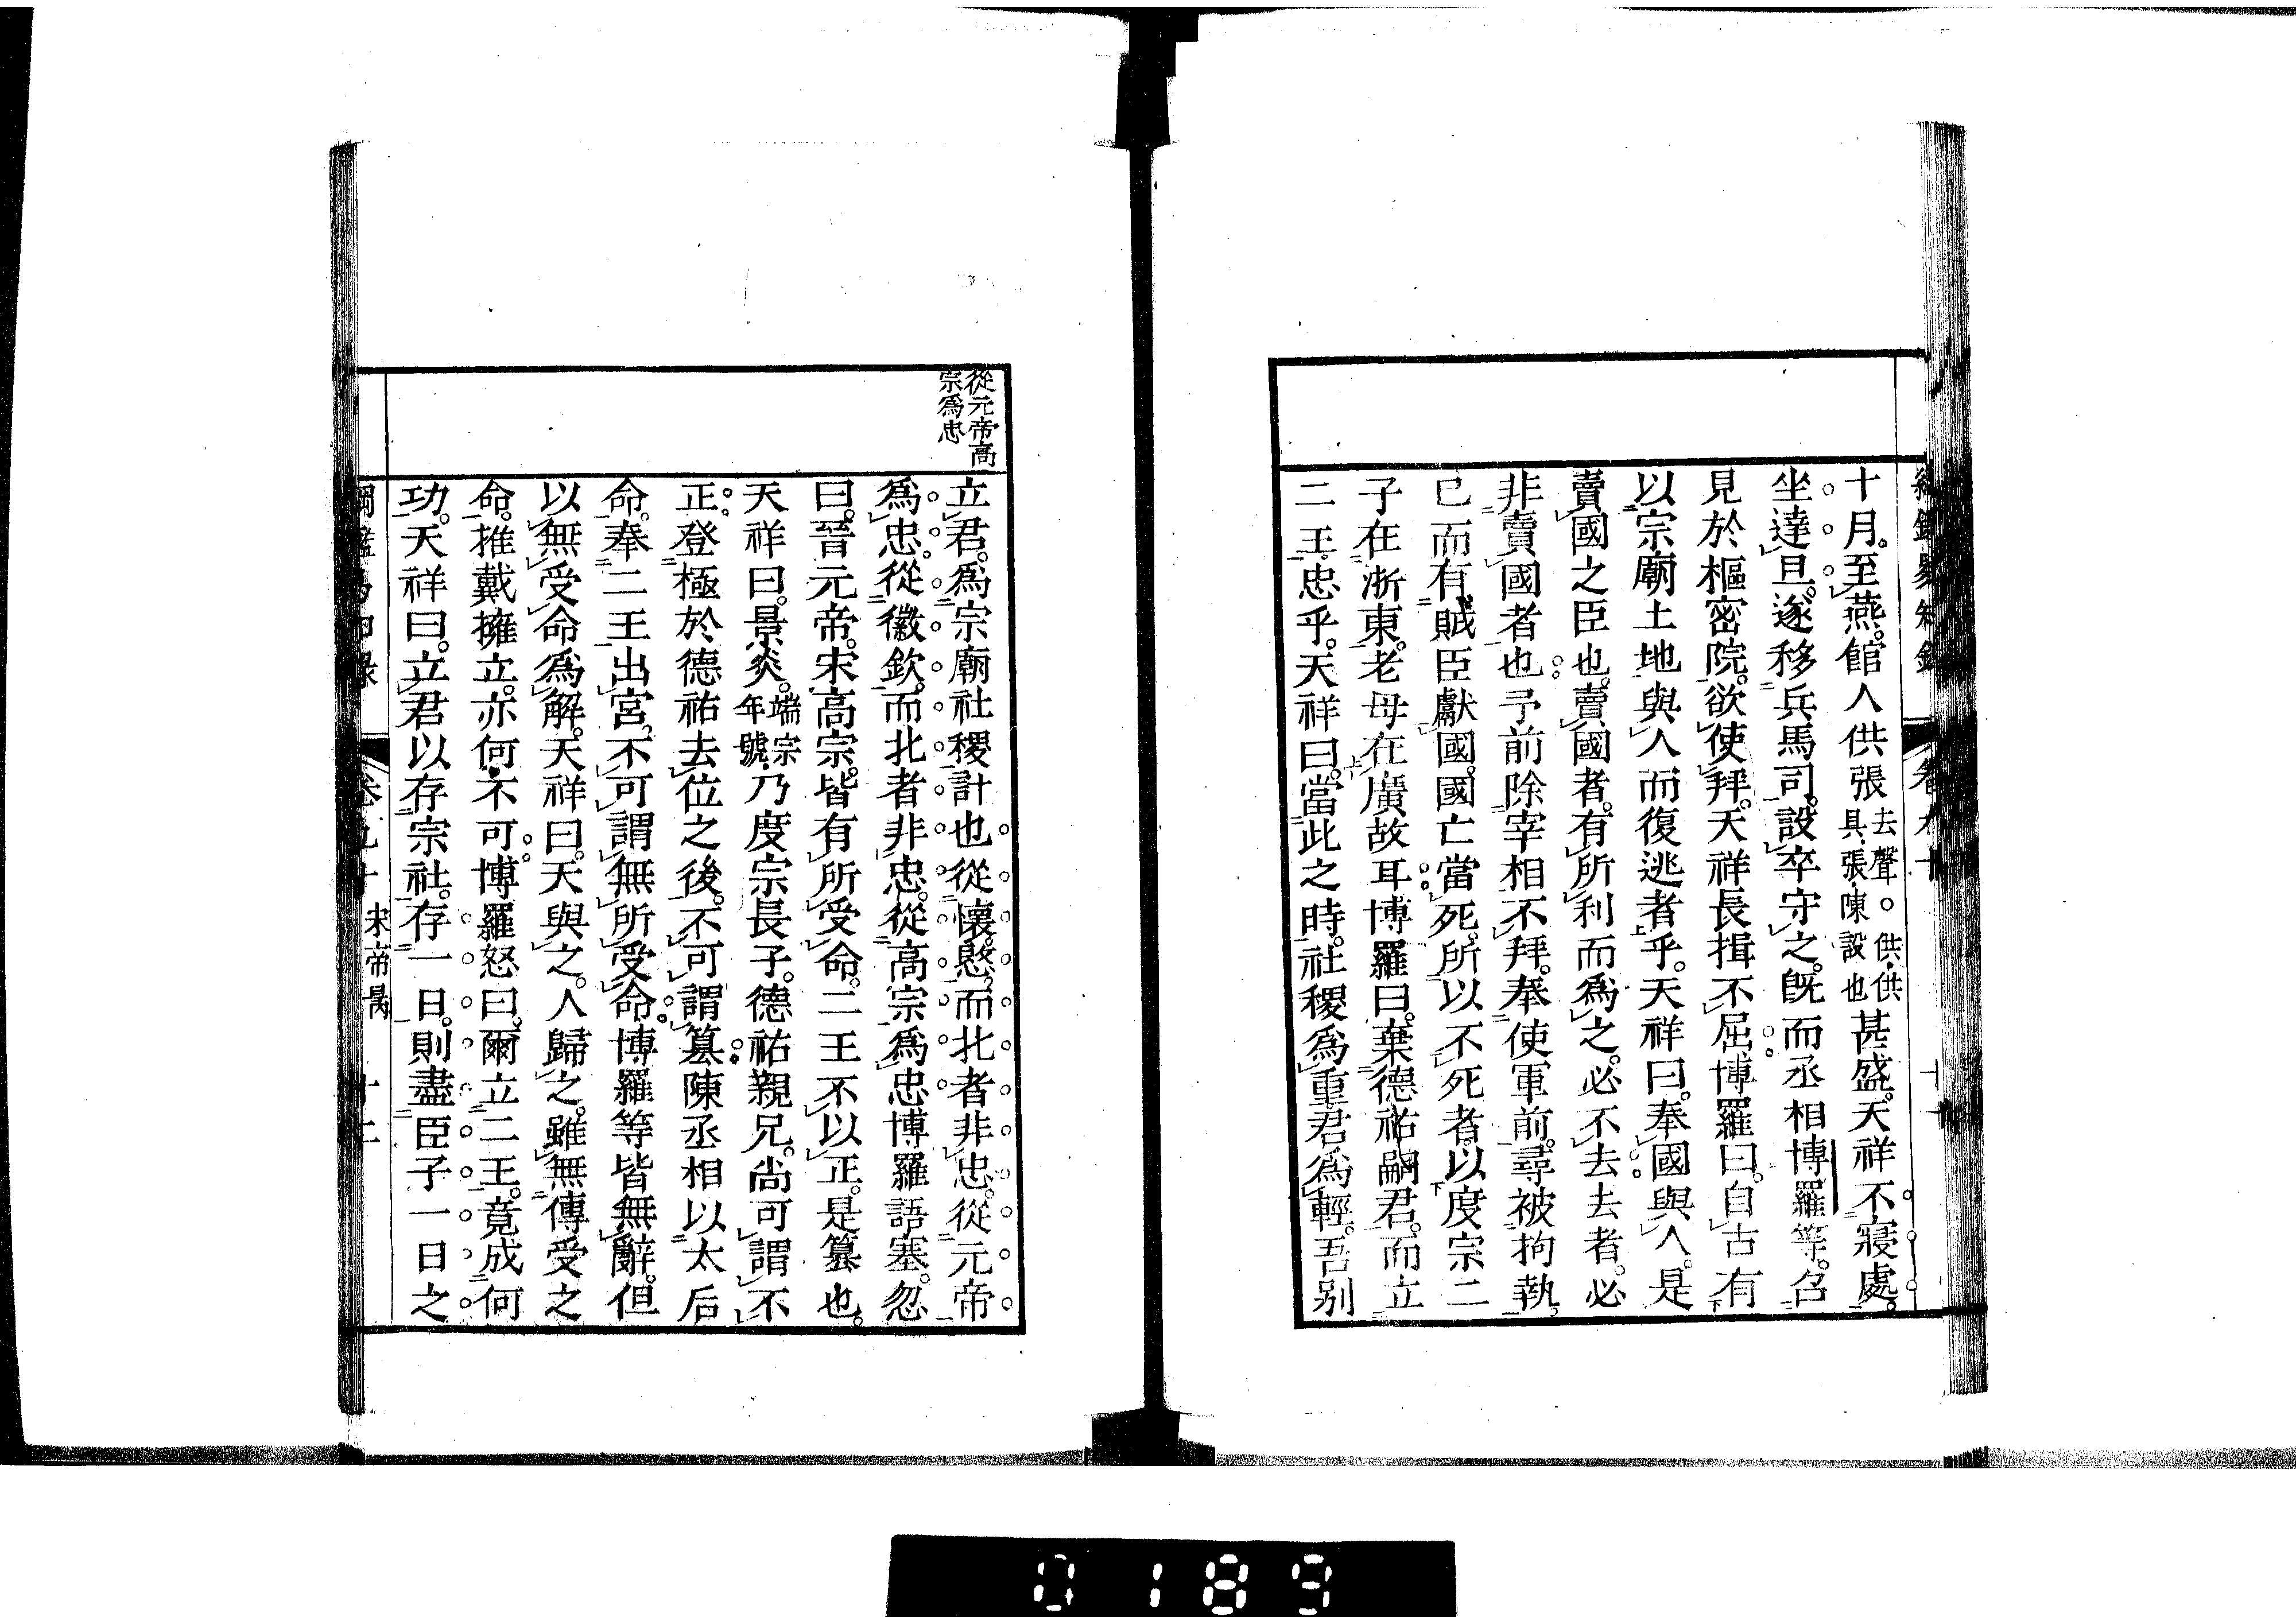 十月。至燕。館人供張去聲○供、供具、張、陳設也甚盛。天祥不寢處。
坐達旦。遂移兵馬司。設卒守之。既而丞相博羅等。召
見於樞密院。欲使拜。天祥長揖不屈。博羅曰。自古有
以宗廟土地與人而復逃者乎。天祥曰。奉國與人。是
賣國之臣也。賣國者。有所利而為之。必不去。去者。必
非賣國者也。予前除宰相不拜。奉使軍前。尋被拘執。
已而有賊臣獻國。國亡當死。所以不死者。以度宗二
子在浙東。老母在廣故耳。博羅曰。棄德祐嗣君。而立
二王。忠乎。天祥曰。當此之時。社稷為重君為輕。吾別
從元帝高
宗為忠
立君。為宗廟社稷計也。從懷愍。而北者非忠。從元帝
為忠。從徽欽。而北者非忠。從高宗為忠。博羅語塞。忽
曰。晉元帝。宋高宗。皆有所受命。二王不以正。是篡也。
天祥曰。景炎。端宗年號乃度宗長子。德祐親兄。尚可謂不
正。登極於德祐去位之後。不可謂篡。陳丞相以太后
命。奉二王出宮。不可謂無所受命。博羅等皆無辭。但
以無受命為解。天祥曰。天與之。人歸之。雖無傳受之
命。推戴擁立。亦何不可。博羅怒曰。爾立二王。竟成何
功。天祥曰。立君以存宗社。存一日。則盡臣子一日之
宋帝昺
0189